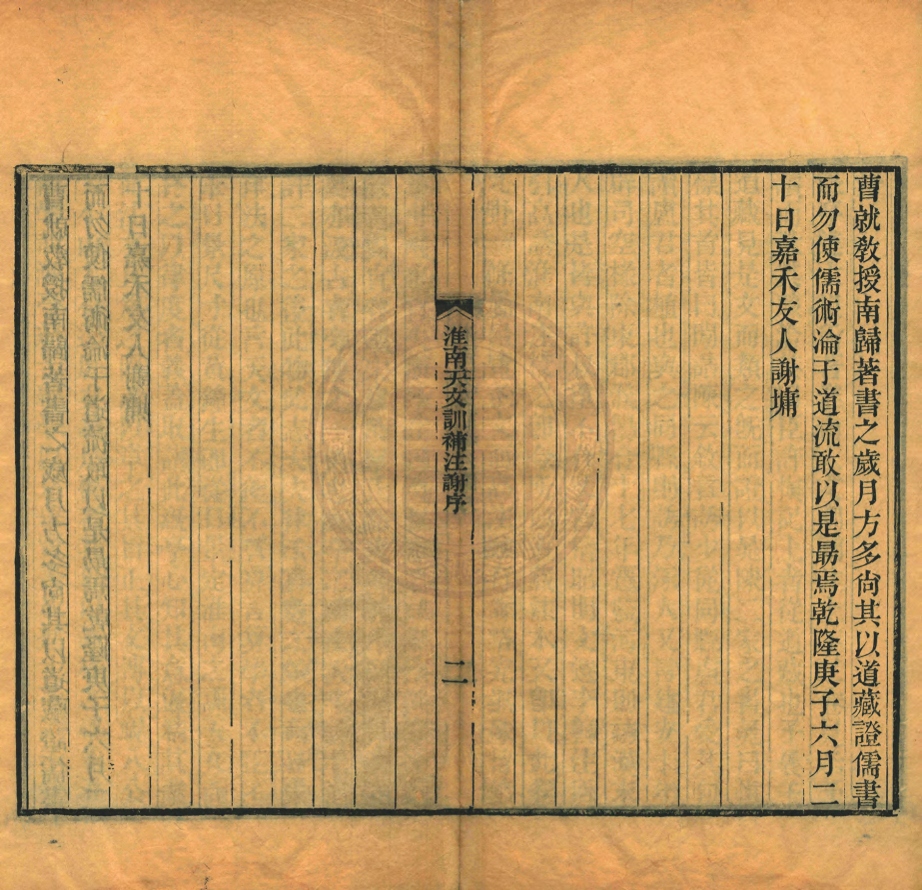 曹就敎授南歸著書之歲月方多尙其以道藏證儒書
而勿使儒術淪于道流敢以是勗焉乾隆庚子六月二
十日嘉禾友人謝墉
淮南天文訓補注謝序
二